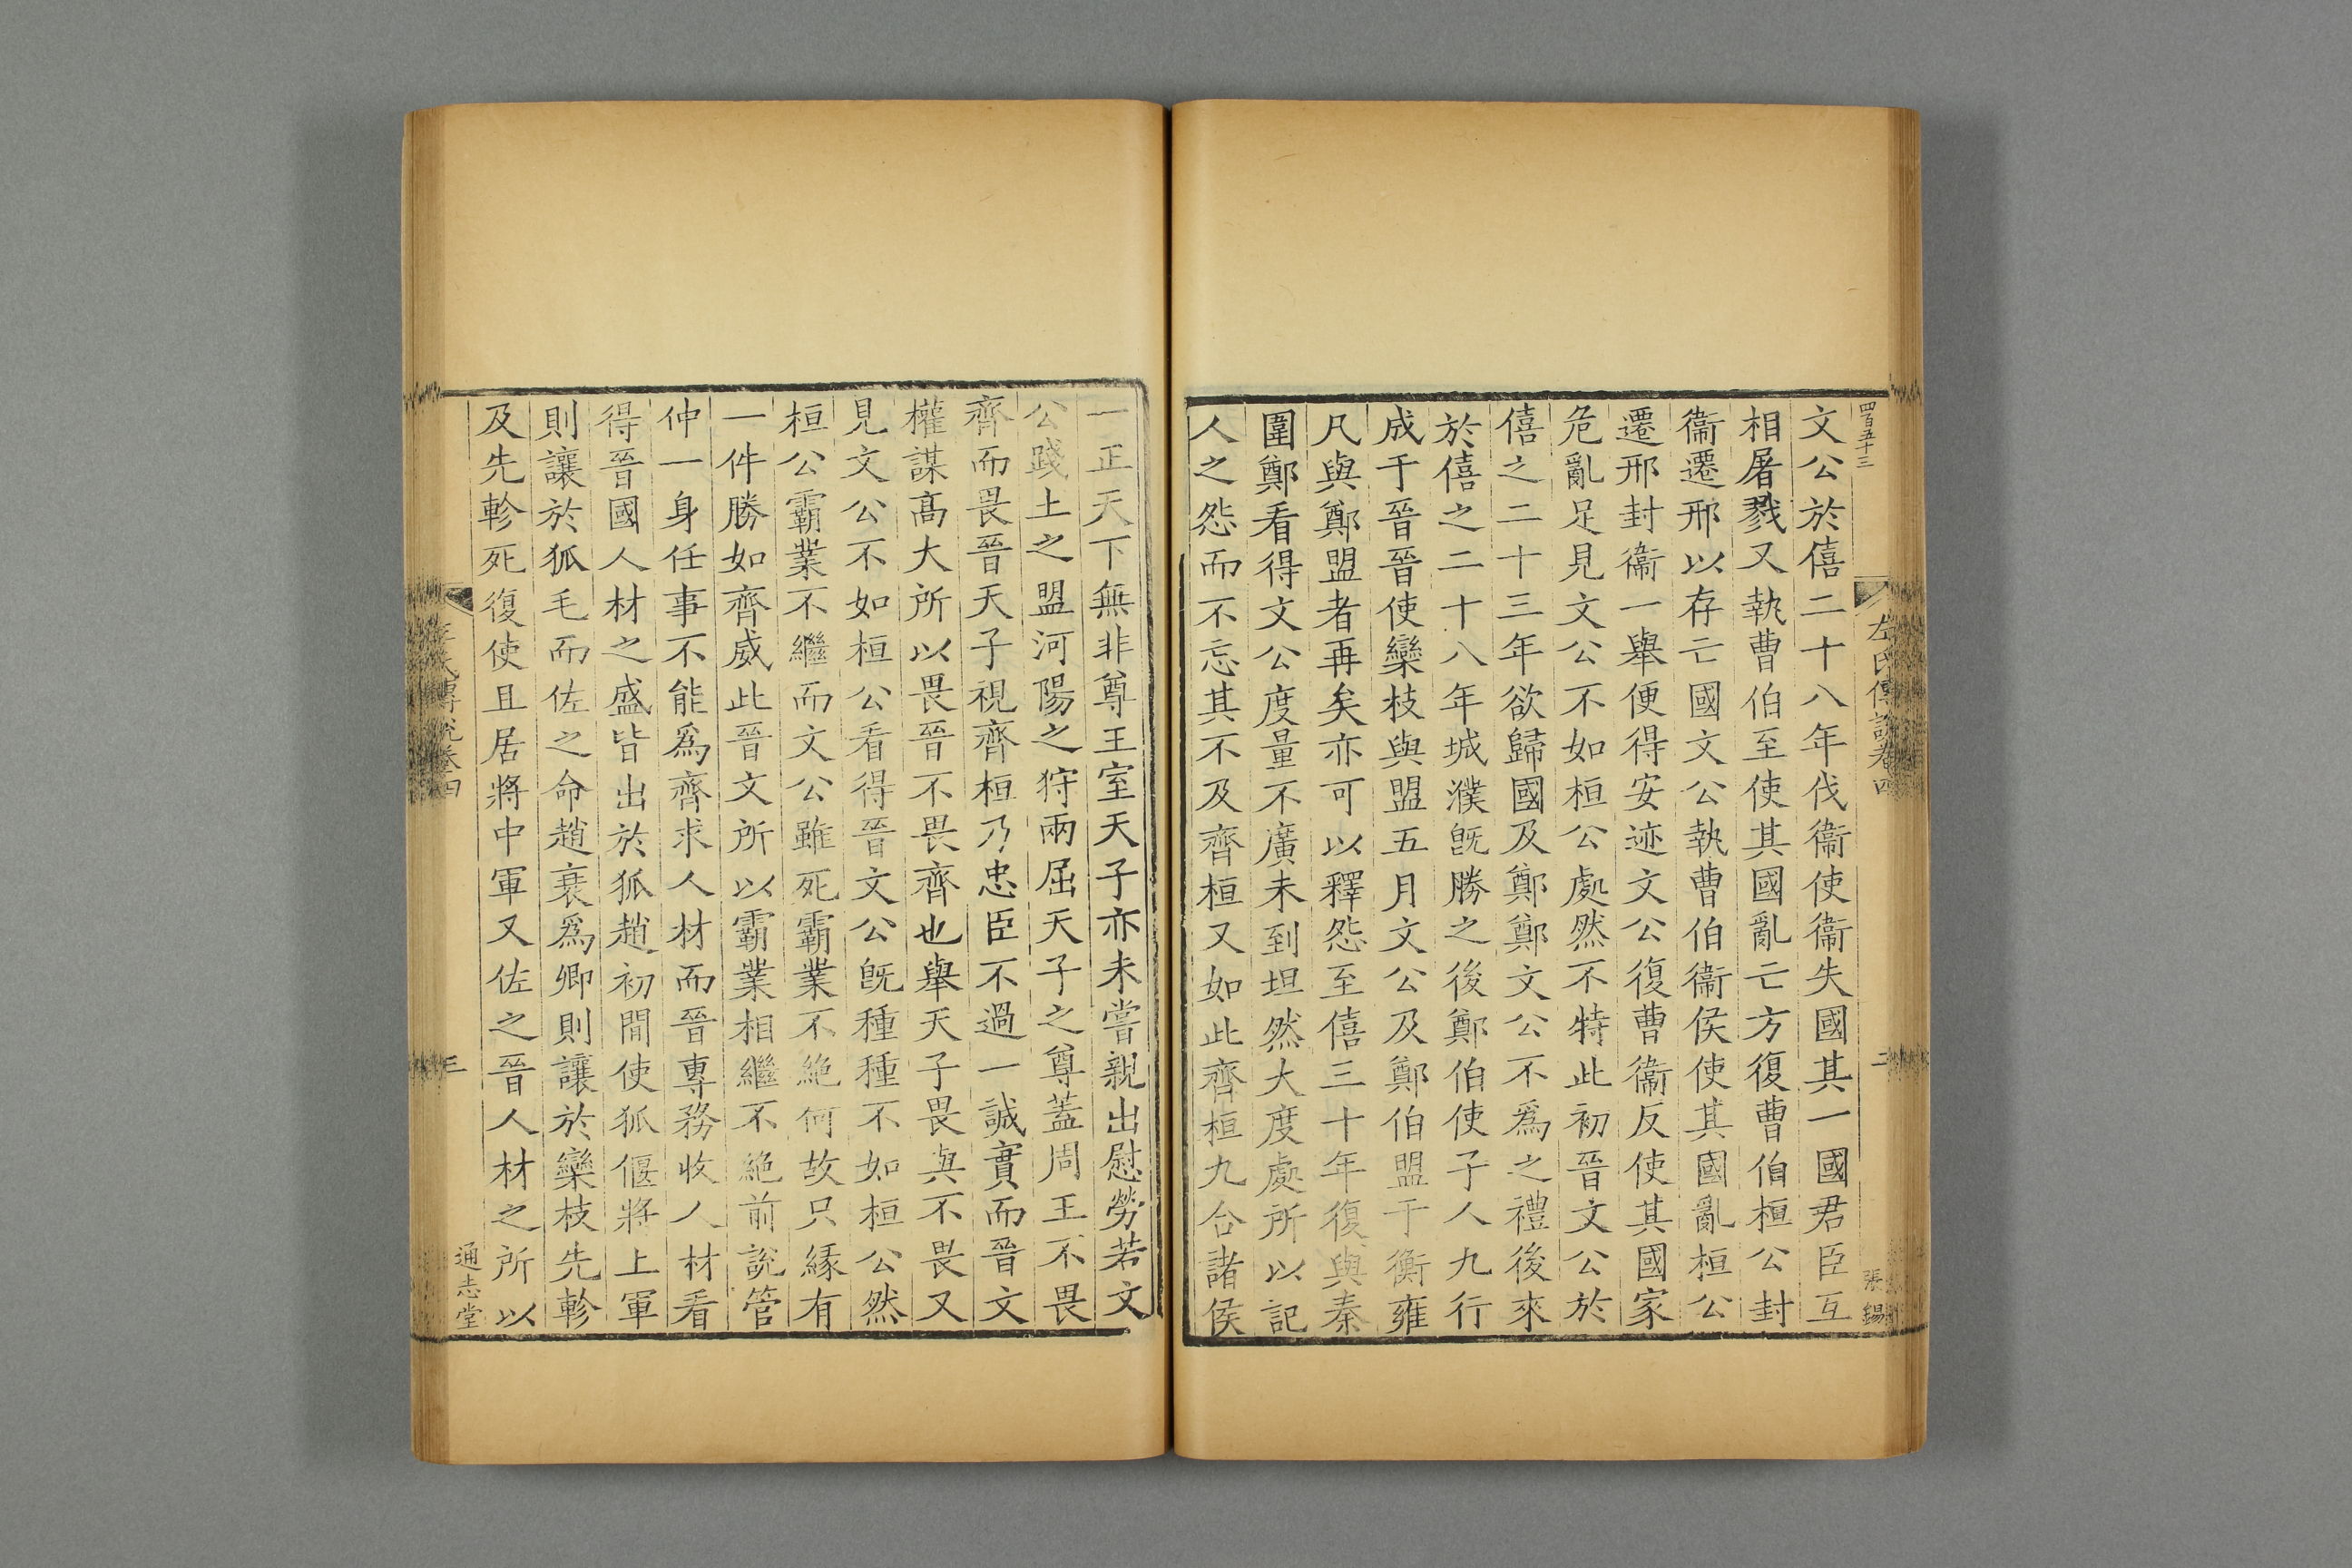 四百五十三
左氏傳說卷四
二
張錫
文公於僖二十八年伐衞使衞失國其一國君臣互
相屠戮又執曹伯至使其國亂亡方復曹伯桓公封
衞遷邢以存亡國文公執曹伯衞侯使其國亂桓公
遷邢封衞一舉便得安迹文公復曹衞反使其國家
危亂足見文公不如桓公處然不特此初晉文公於
僖之二十三年欲歸國及鄭鄭文公不爲之禮後來
於僖之二十八年城濮旣勝之後鄭伯使子人九行
成于晉晉使欒枝與盟五月文公及鄭伯盟于衡雍
凡與鄭盟者再矣亦可以釋怨至僖三十年復與秦
圍鄭看得文公度量不廣未到坦然大度處所以記
人之怨而不忘其不及齊桓又如此齊桓九合諸侯
一正天下無非尊王室天子亦未嘗親出慰勞若文
公踐土之盟河陽之狩兩屈天子之尊蓋周王不畏
齊而畏晉天子視齊桓乃忠臣不過一誠實而晉文
權謀髙大所以畏晉不畏齊也舉天子畏與不畏又
見文公不如桓公看得晉文公旣種種不如桓公然
桓公霸業不繼而文公雖死霸業不絶何故只緣有
一件勝如齊威此晉文所以霸業相繼不絶前說管
仲一身任事不能爲齊求人材而晉專務收人材看
得晉國人材之盛皆出於狐趙初間使狐偃將上軍
則讓於狐毛而佐之命趙衰爲卿則讓於欒枝先軫
及先軫死復使且居將中軍又佐之晉人材之所以
左氏傳說卷四
三
通志堂